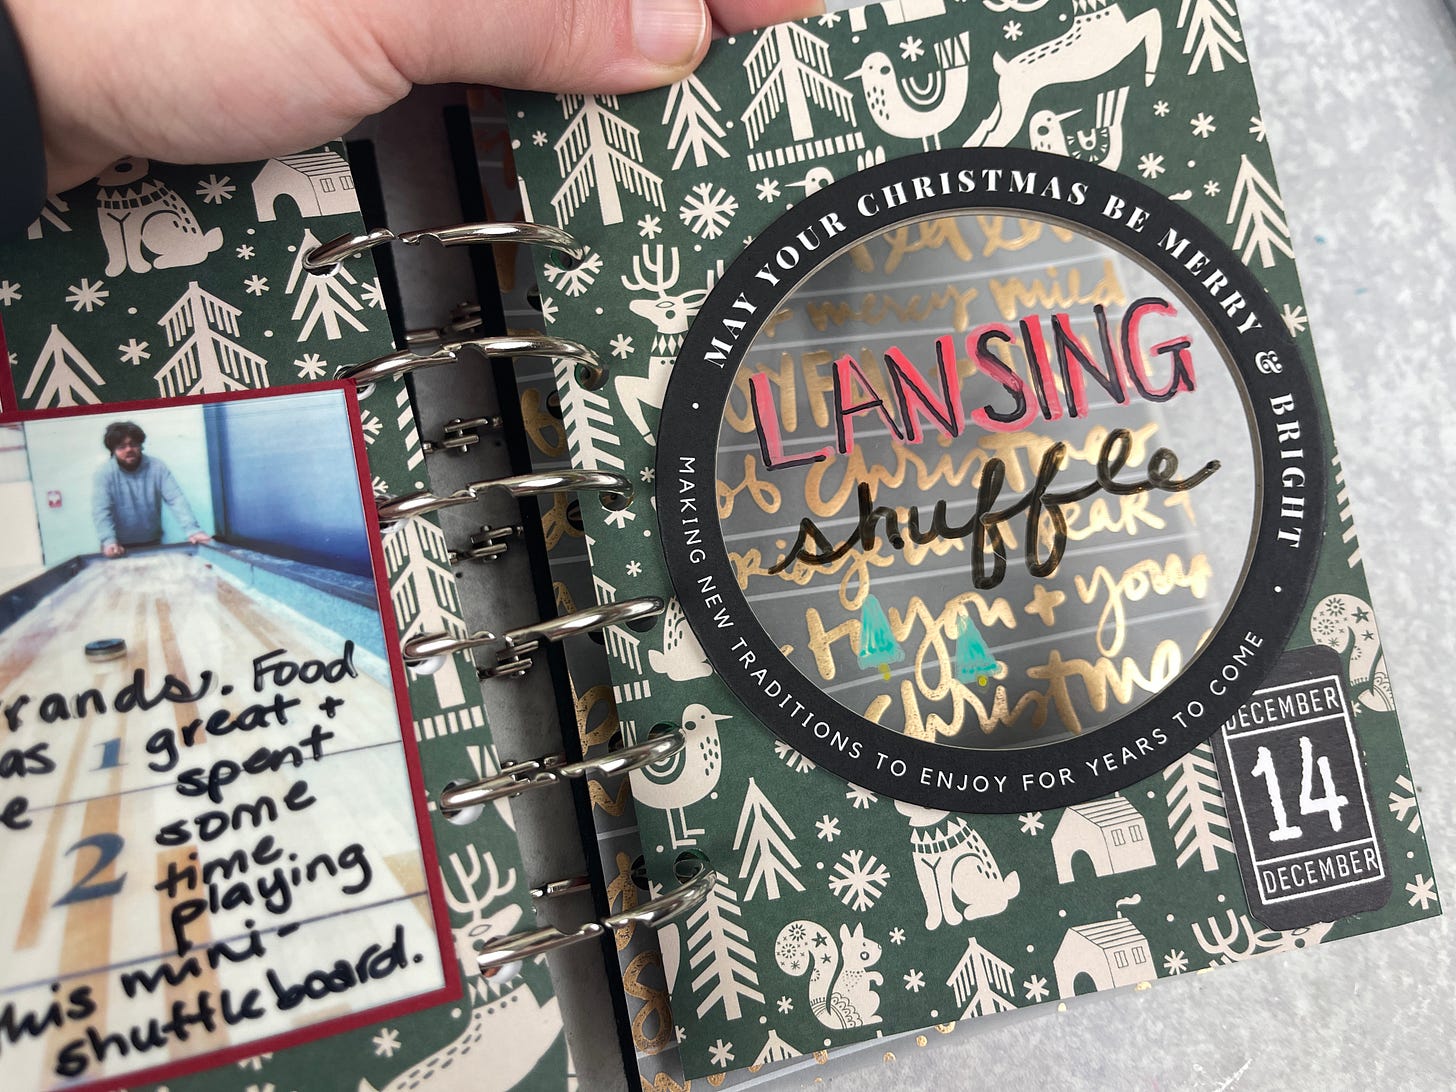 rands. Food
as 1 great +
e spent
2 some
time
playing
this mini-
shuffleboard.
MAY YOUR CHRISTMAS BE MERRY & BRIGHT
MAKING NEW TRADITIONS TO ENJOY FOR YEARS TO COME
+ mercy mild
LANSING
of Christmas
shuffle
to you + your
Christma
DECEMBER
14
DECEMBER